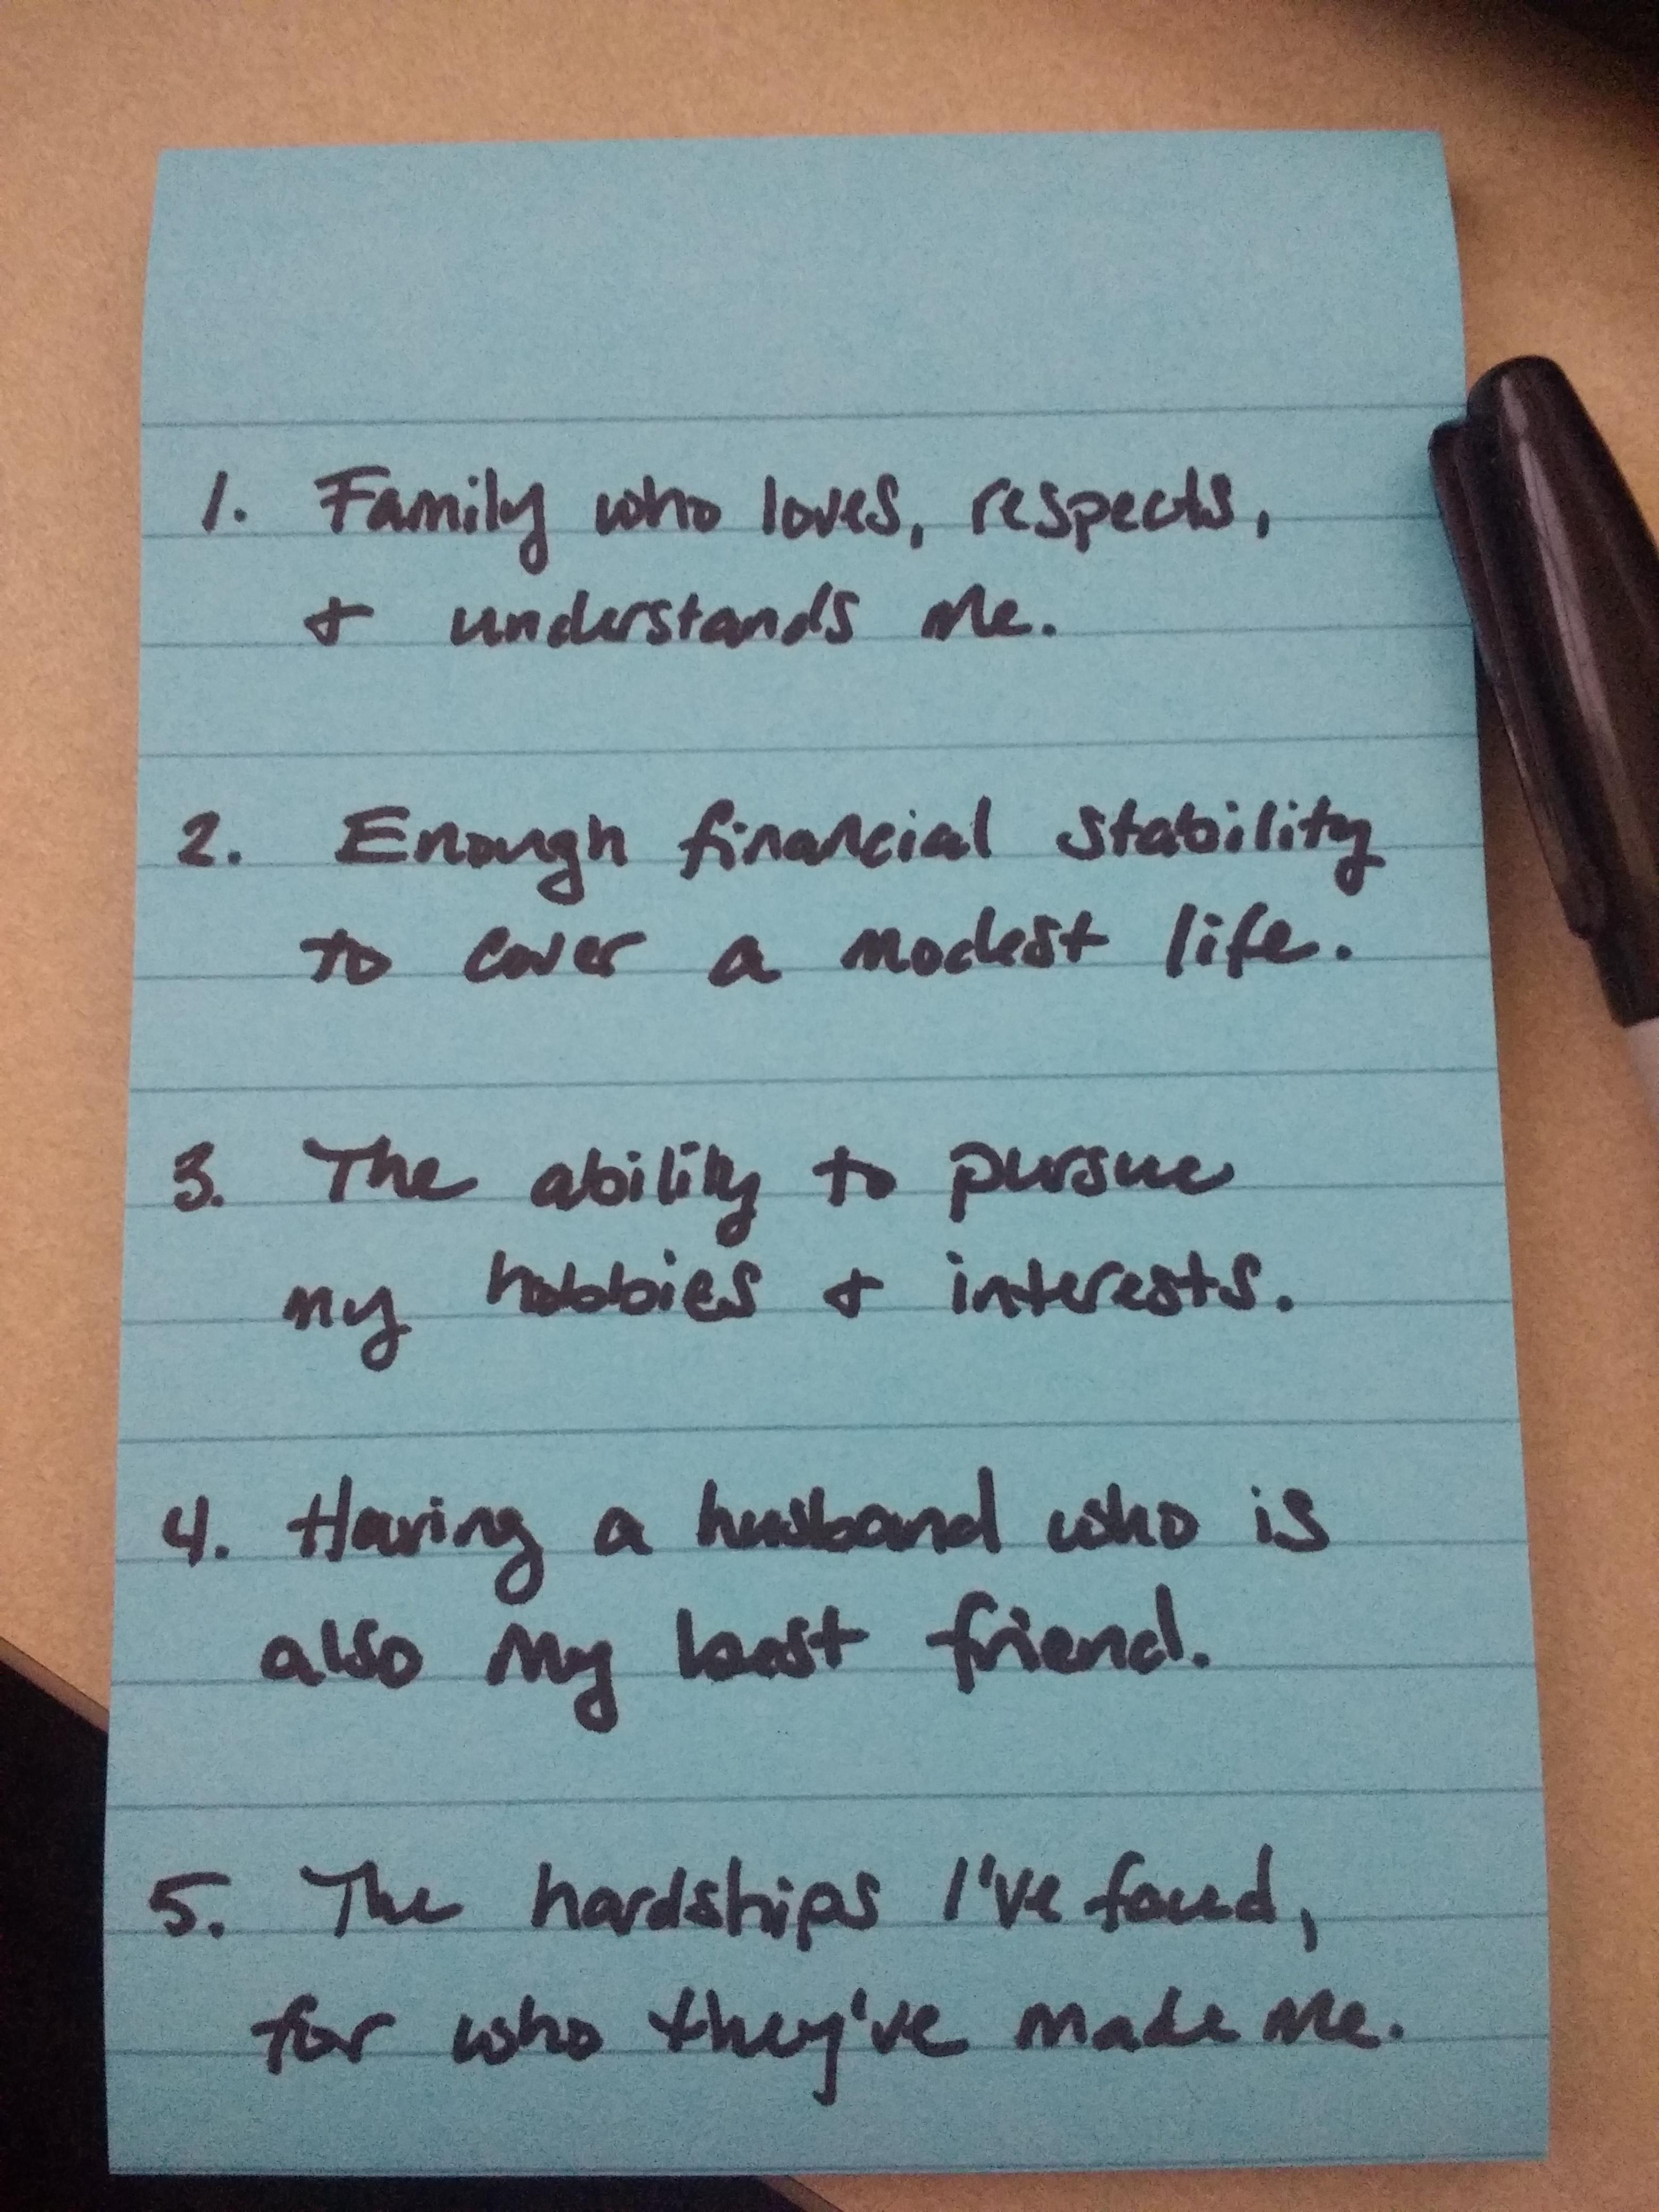 1. Family who loves, respects,
+ understands me.
2. Enough financial stability
to cover a modest life.
3. The ability to pursue
my hobbies + interests.
4. Having a husband who is
also my best friend.
5. The hardships I've faced,
for who they've made me.